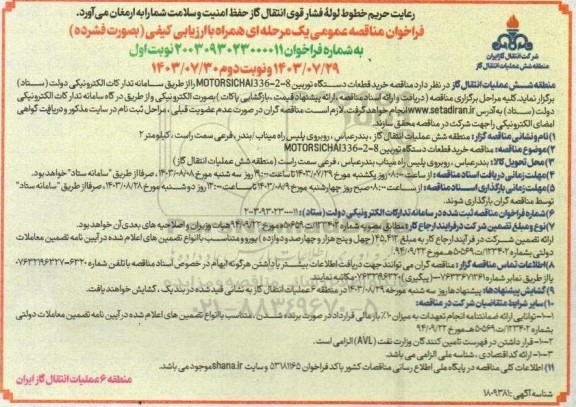 رعایت حریم خطوط لولهٔ فشار قوی انتقال گاز حفظ امنیت و سلامت شما را به ارمغان می‌آورد.
فراخوان مناقصه عمومی یک مرحله ای همراه با ارزیابی کیفی (بصورت فشرده)
به شماره فراخوان ۲۰۰۳۰۹۳۰۲۳۰۰۰۰۱۱ نوبت اول
۱۴۰۳/۰۷/۲۹ و نوبت دوم ۱۴۰۳/۰۷/۳۰
شرکت انتقال گاز ایران
منطقه شش عملیات انتقال گاز
منطقه شش عملیات انتقال گاز در نظر دارد مناقصه خرید قطعات دستگاه توربین MOTORSICHAI336-2-8 را از طریق سامانه تدارکات الکترونیکی دولت (ستاد)
برگزار نماید. کلیه مراحل برگزاری مناقصه (دریافت و ارائه اسناد مناقصه، ارائه پیشنهاد قیمت، بازگشایی پاکات) بصورت الکترونیکی و از طریق درگاه سامانه تدارکات الکترونیکی
دولت (ستاد) به آدرس www.setadiran.ir انجام خواهد گرفت، لازم است مناقصه گران در صورت عدم عضویت قبلی، مراحل ثبت نام در سایت مذکور و دریافت گواهی
امضای الکترونیکی را جهت شرکت در مناقصه محقق سازند.
۱) نام و نشانی مناقصه گزار: منطقه شش عملیات انتقال گاز، بندرعباس، روبروی پلیس راه میناب بندر، فرعی سمت راست، کیلومتر ۲
۲) موضوع مناقصه: مناقصه خرید قطعات دستگاه توربین MOTORSICHAI336-2-8
۳) محل تحویل کالا: بندرعباس، روبروی پلیس راه میناب بندرعباس، فرعی سمت راست (منطقه شش عملیات انتقال گاز)
۴) مهلت زمانی دریافت اسناد مناقصه: از ساعت ۰۸:۰۰ روز یکشنبه مورخ ۱۴۰۳/۰۷/۲۹ تا ساعت ۱۳:۰۰ روز سه شنبه مورخ ۱۴۰۳/۰۸/۰۸، صرفا از طریق "سامانه ستاد" خواهد بود.
۵) مهلت زمانی بارگذاری اسناد مناقصه: از ساعت ۰۸:۰۰ صبح روز چهارشنبه مورخ ۱۴۰۳/۰۸/۰۹ تا ساعت ۱۳:۰۰ روز دوشنبه مورخ ۱۴۰۳/۰۸/۲۸، صرفا از طریق "سامانه ستاد"
توسط مناقصه گران بارگذاری شوند.
۶) شماره فراخوان مناقصه ثبت شده در سامانه تدارکات الکترونیکی دولت (ستاد): ۲۰۰۳۰۹۳۰۲۳۰۰۰۰۱۱
۷) نوع و مبلغ تضمین شرکت در فرآیند ارجاع کار: مطابق مصوبه شماره ۱۲۳۴۰۲/ت۵۰۶۵۹هـ مورخ ۹۴/۰۹/۲۲ هیات وزیران و اصلاحیه های بعدی آن خواهد بود.
ارائه تضمین شرکت در فرآیند ارجاع کار به مبلغ
۸) اطلاعات تماس مناقصه گزار: مناقصه گران می توانند جهت دریافت اطلاعات بیشتر یا داشتن هرگونه ابهام در خصوص اسناد مناقصه با تلفن شماره
یا از طریق نمابر شماره
۹) گشایش پیشنهادها: پیشنهادها روز سه شنبه مورخه ۱۴۰۳/۰۸/۲۹ در منطقه ۶ عملیات انتقال گاز به نشانی قید شده در بند یک، گشایش خواهند یافت.
۱۰) سایر شرایط متقاضیان شرکت در مناقصه:
۱-۱۰- توانایی ارائه ضمانتنامه انجام تعهدات به میزان ۱۰٪ بار مالی قرارداد در صورت برنده شدن، متناسب با انواع تضمین های اعلام شده در آیین نامه تضمین معاملات دولتی
بشماره ۱۲۳۴۰۲/ت۵۰۶۵۹هـ مورخ ۹۴/۰۹/۲۲
۲-۱۰- قرار داشتن در فهرست تامین کنندگان وزارت نفت (AVL) الزامی است.
۳-۱۰- ارائه کد اقتصادی، شناسه ملی الزامی می باشد.
۱۱) اطلاعات کلی مناقصه در پایگاه ملی اطلاع رسانی مناقصات کشور با کد فراخوان ۵۳۱۸۱۱۶۵ وب سایت shana.ir موجود می باشد.
شناسه آگهی: ۱۸۰۹۳۸۱
منطقه ۶ عملیات انتقال گاز ایران